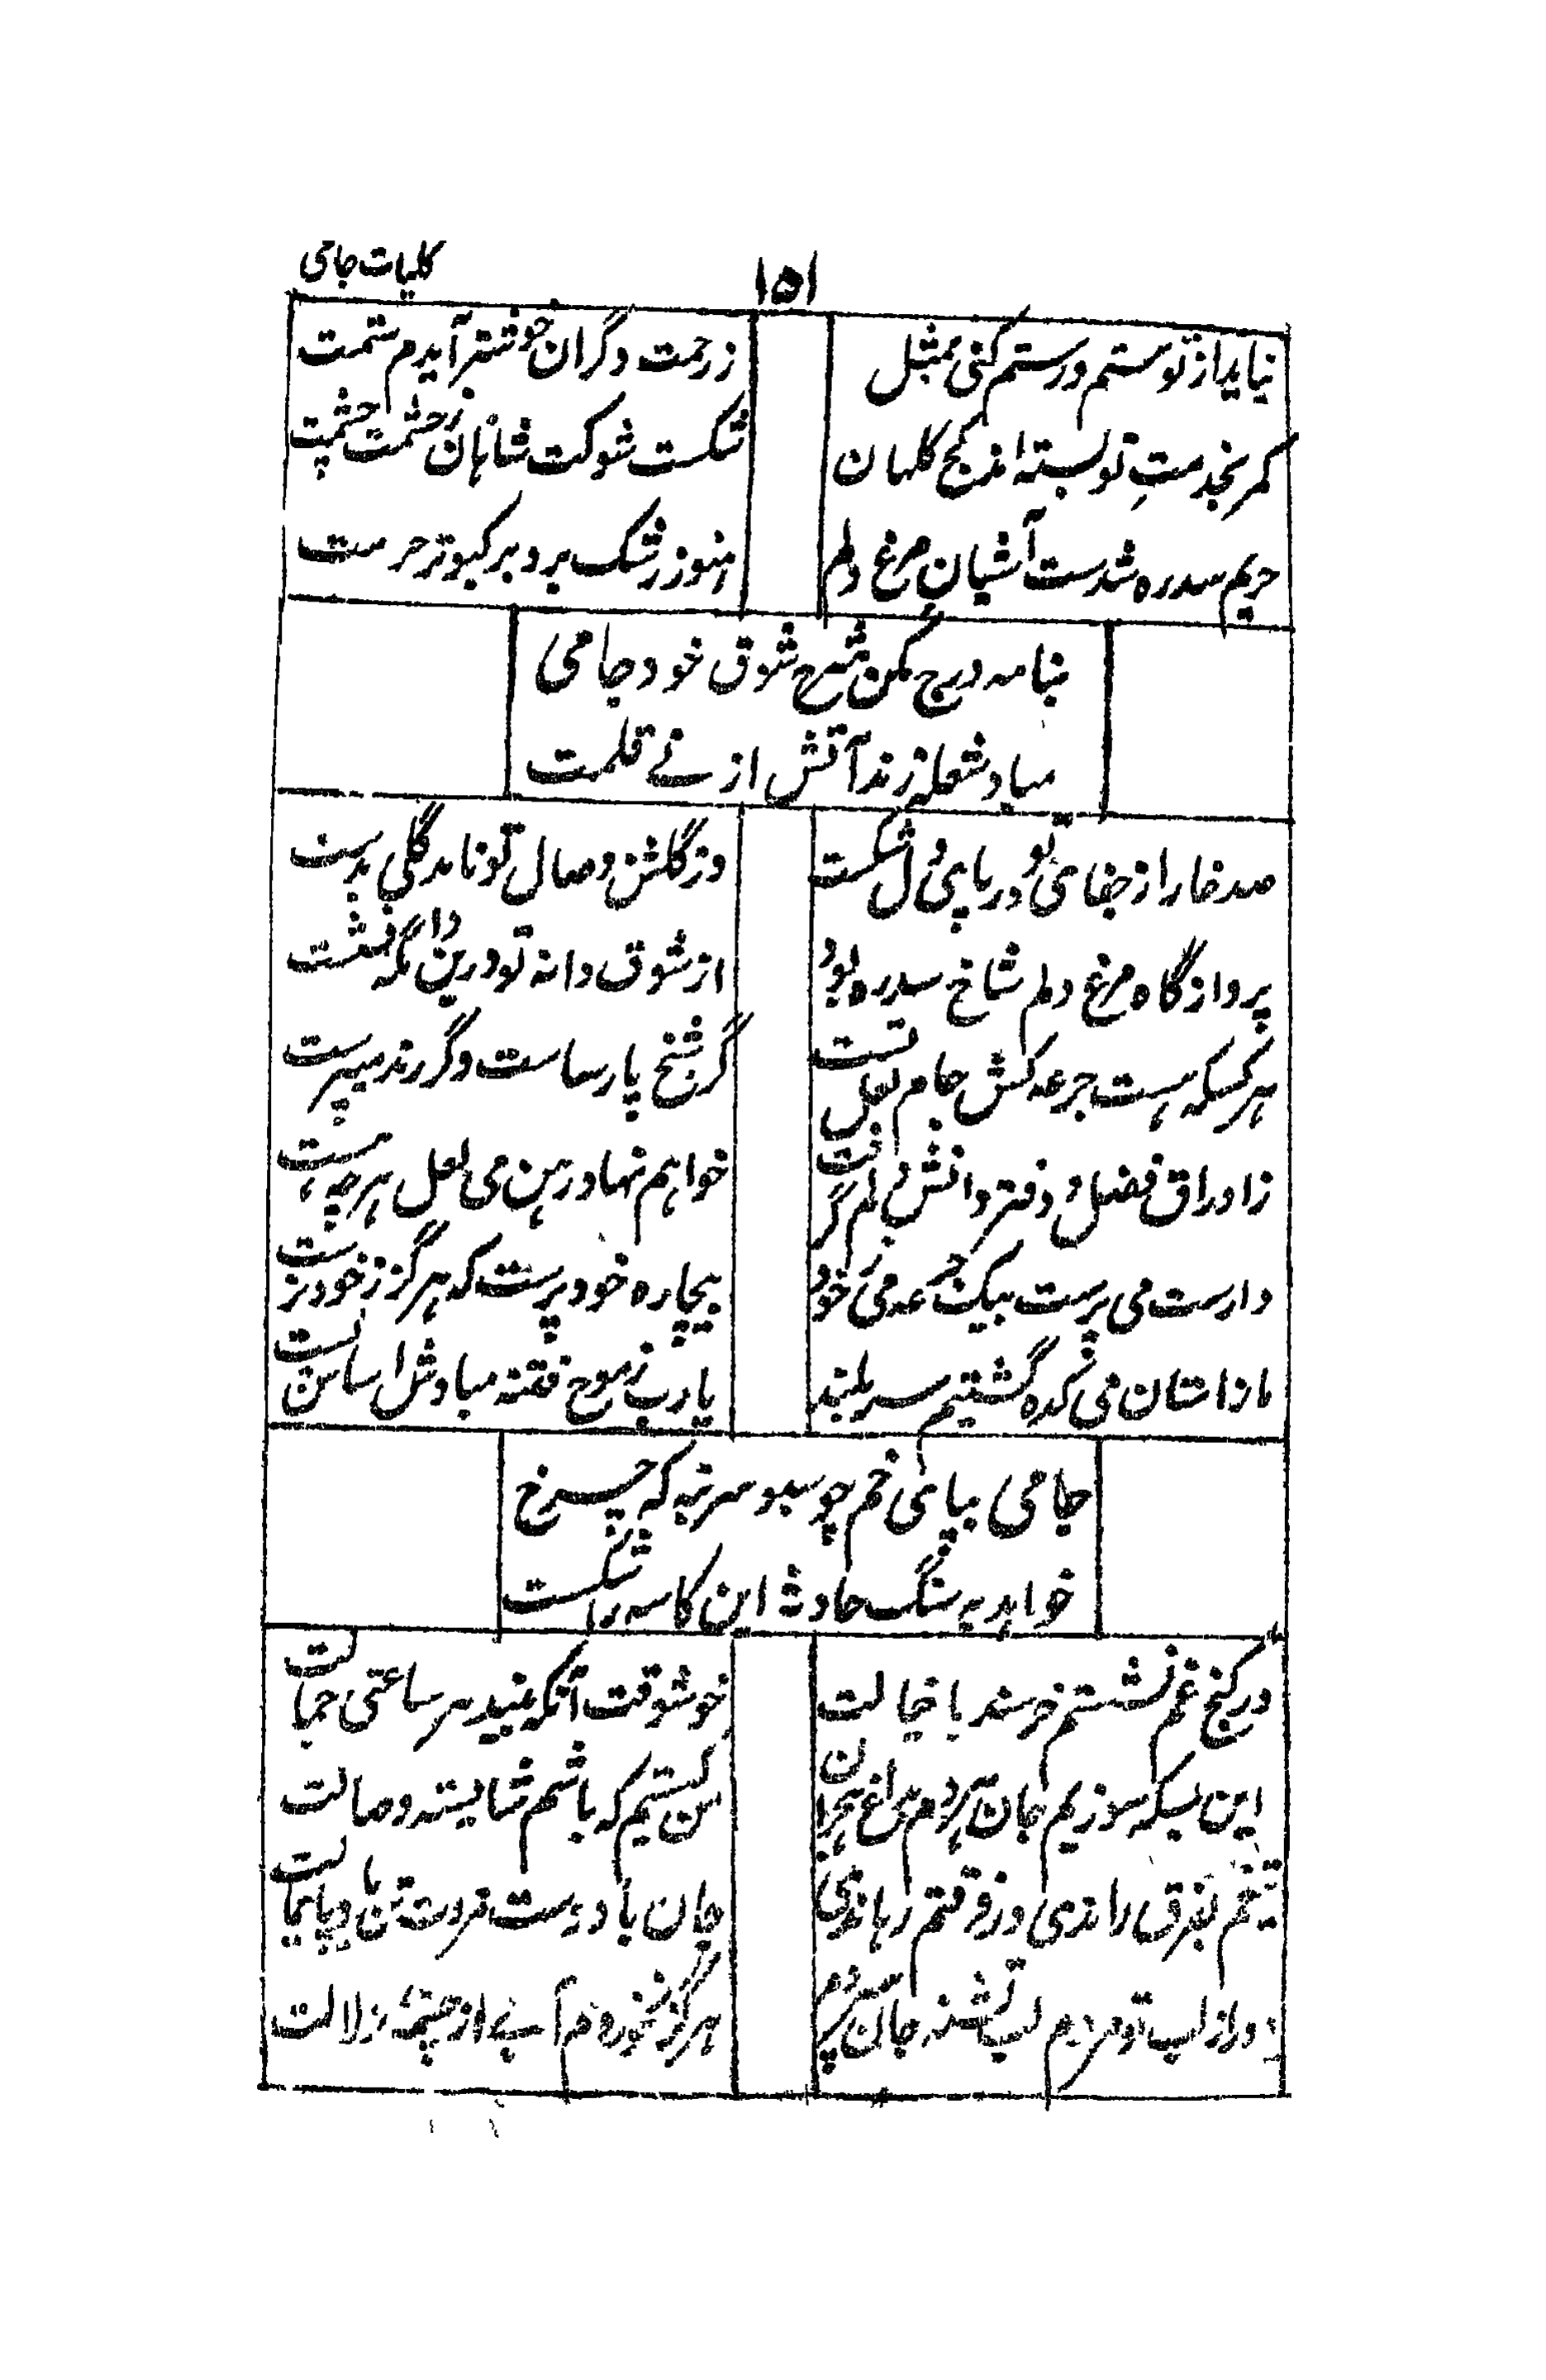 کلیات جامی
۱۵۱
نیاید از تو ستم ور ستم کنی بمثل
ز رحمت دگران خوشتر آیدم ستمت
کمر بخدمتِ تو بسته اند کج کلهان
شکست شوکت شاهان ز حشمت حشمت
حریم سدره شدست آشیان مرغ دلم
هنوز رشک برد بر کبوتر حرمت
بنامه درج مکن شرح شوق خود جامی
مباد شعله زند آتش از نے قلمت
صد خار از جفای تو در پای دل شکست
وز گلشن وصال تو نامد گلی بدست
پروازگاه مرغ دلم شاخ سدره بود
از شوق دانه تو درین دامگه نشست
هر کسکه هست جرعه کش جام لعل تست
گر شیخ پارساست وگر رند میپرست
ز اوراق فضل و دفتر دانش دلم گرفت
خواهم نهاد رهن می لعل هرچه هست
وارست می پرست بیک جرعه می ز خود
بیچاره خودپرست که هرگز ز خود نرست
ما ز استان می کده گشتیم سربلند
یارب ز موج فتنه مبادش اساس نست
جامی بپای خم چو سبو سر بنه که چرخ
خواهد به سنگ حادثه این کاسه را شکست
در کنج غم نشستم خرسند با خیالت
خوشوقت آنکه بیند هر ساعتی جمالت
این بسکه سوزیم جان هردم بداغ هجران
من کیستم که باشم شایسته وصالت
تیغم بفرق راندی وز فرقتم رهاندی
جان باد دست مزدت تن پایمالت
دور از لب تو مردم لب تشنه جان سپردم
هرگز نخوردم آبے از چشمهٔ زلالت